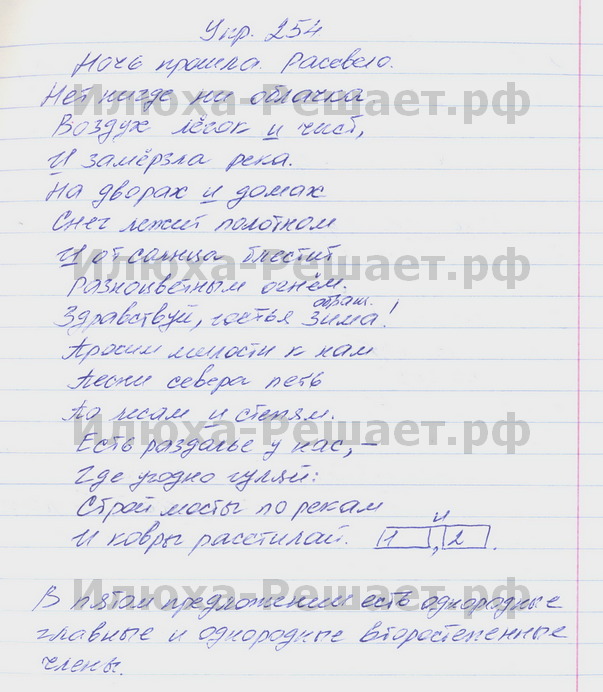 Упр. 254
Ночь прошла. Рассвело.
Нет нигде ни облачка
Воздух лёгок и чист,
И замёрзла река.
На дворах и домах
Снег лежит полотном
И от солнца блестит
Разноцветным огнём.
обращ.
Здравствуй, гостья Зима!
Просим милости к нам
Песни севера петь
По лесам и степям.
Есть раздолье у нас, –
Где угодно гуляй:
Строй мосты по рекам
И ковры расстилай. 1 , и 2 .
В пятом предложении есть однородные
главные и однородные второстепенные
члены.
Илюха-Решает.рф
Илюха-Решает.рф
Илюха-Решает.рф
Илюха-Решает.рф